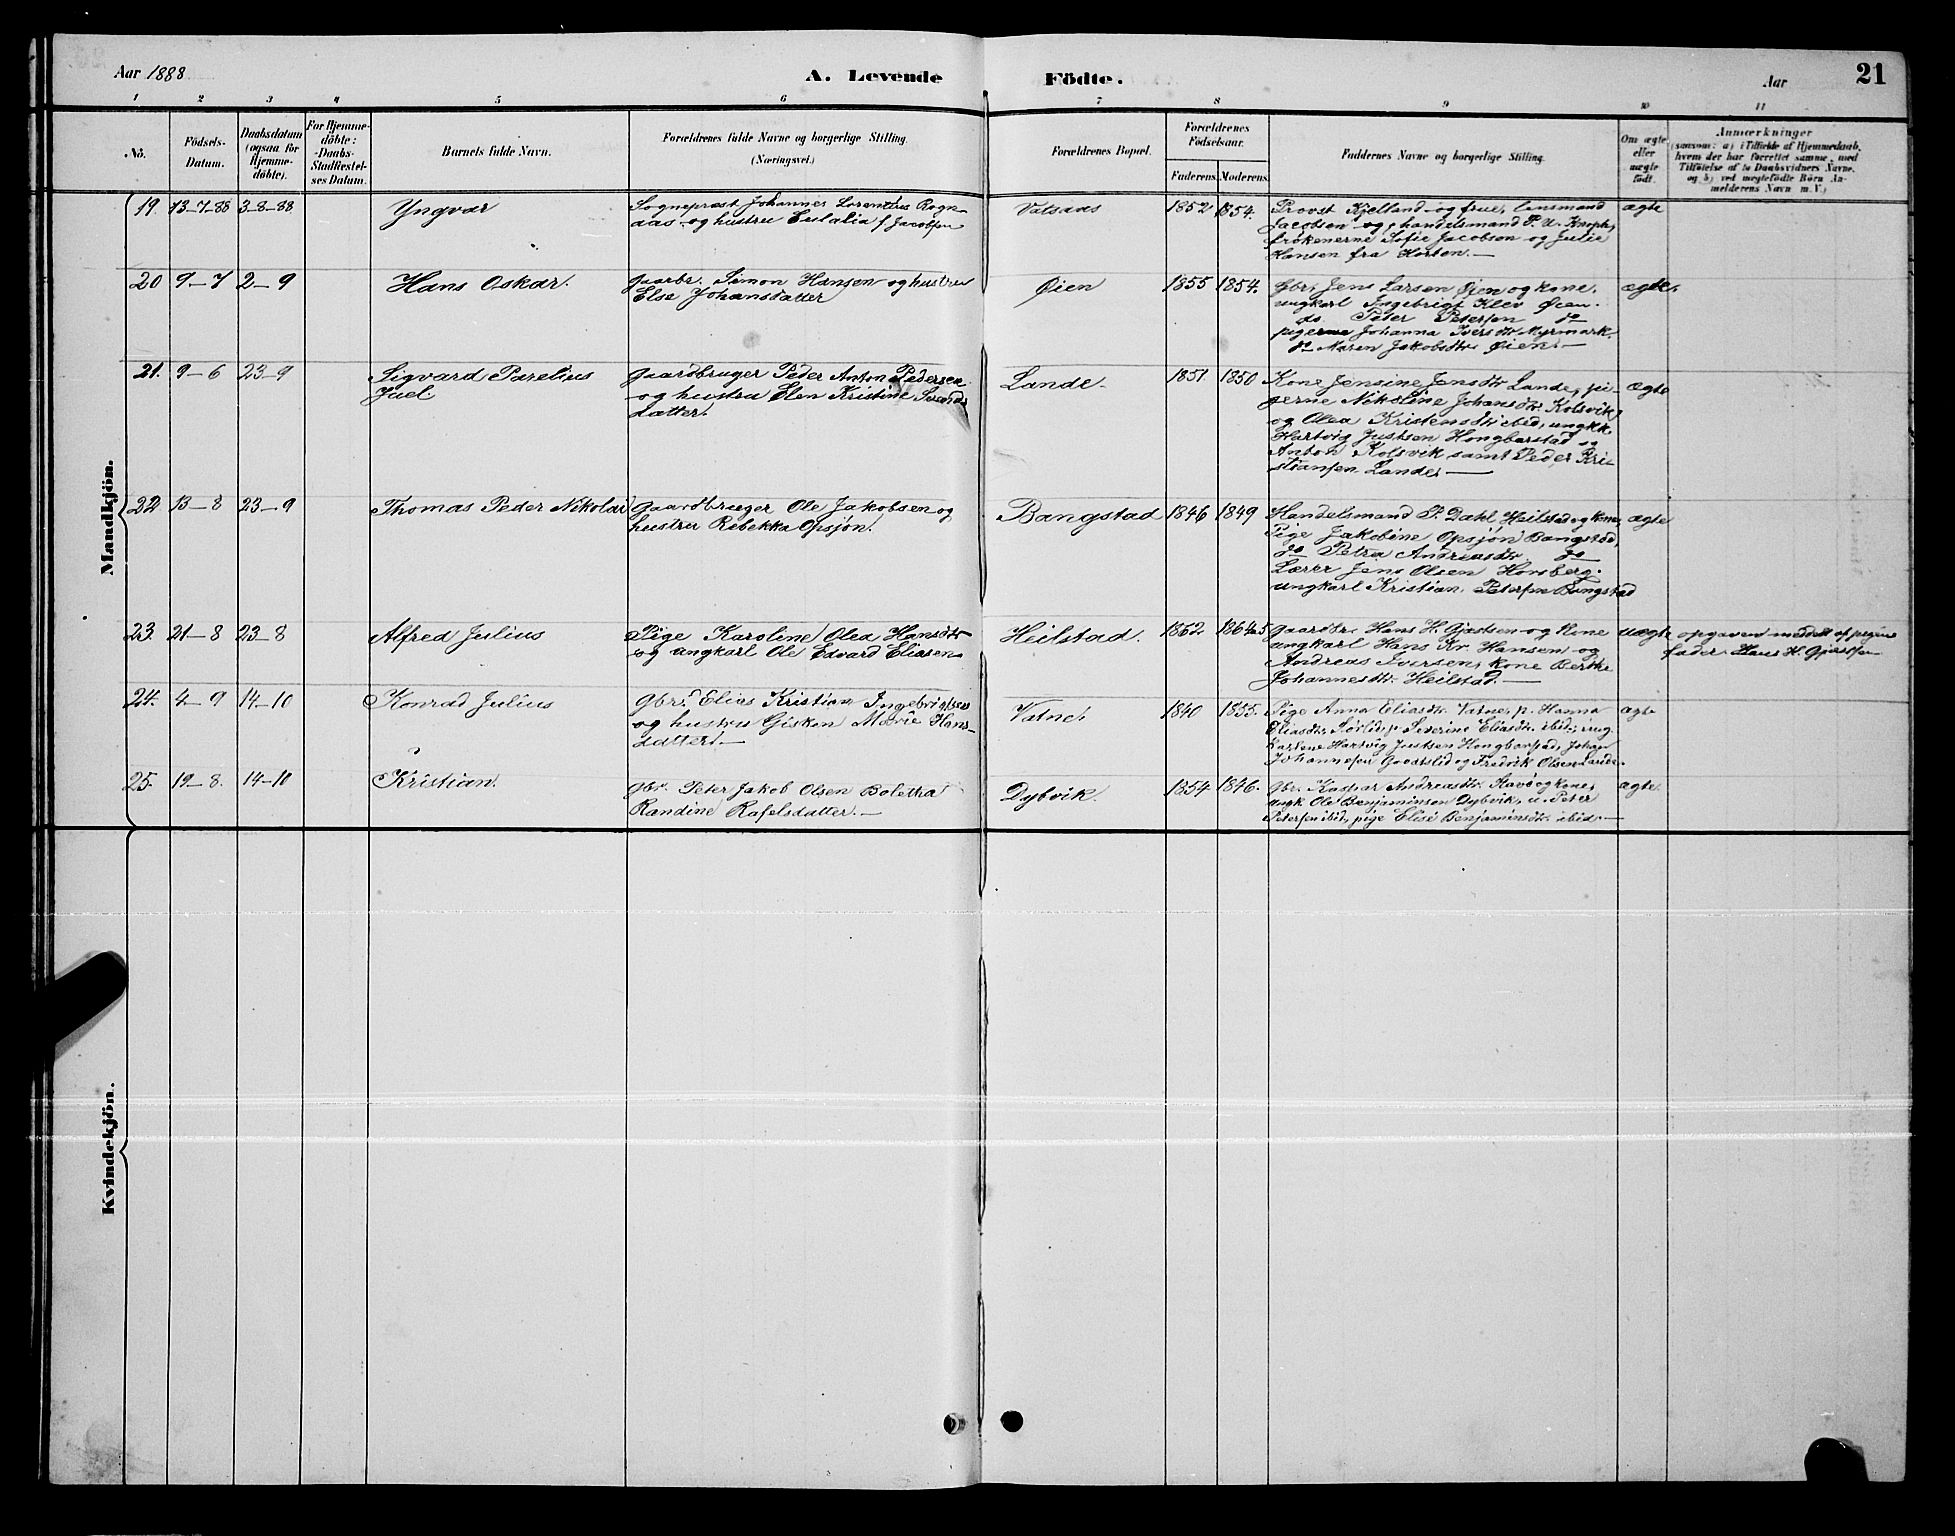 Aar 1888
A. Levende Födte.
Aar
21
1 2 3 4 5 6 7 8 9 10 11
No.
Födsels-Datum.
Daabsdatum (ogsaa for Hjemme-döbte).
For Hjemme-döbte: Daabs-Stadfæstel-ses Datum.
Barnets fulde Navn.
Forældrenes fulde Navne og borgerlige Stilling.
(Næringsvei.)
Forældrenes Bopæl.
Forældrenes Födselsaar.
Faderens. Moderens.
Faddernes Navne og borgerlige Stilling.
Om ægte eller uægte födt.
Anmærkninger
(saasom: a) i Tilfælde af Hjemmedaab,
hvem der har forrettet samme, med
Tilföielse af to Daabsvidners Navne.
og b) ved uægtefödte Börn An-
melderens Navn m.V.)
Mandkjön.
19. 13-7-88 3-8-88 Yngvar
Sogneprest Johannes Lorentius Rogn-
aas og hustru Eulalia f Jacobsen
Vatsaas 1852 1854.
Provst Kjelland og frue, lensmand
Jacobsen og handelsmand P. U. Knoph,
frökenerne Sofie Jacobsen og Julie
Hansen fra Horten.
ægte
20 9-7 2-9 Hans Oskar.
Gaarbr. Simon Hansen og hustru
Else Johansdatter
Øien 1855 1854.
Gbr. Jens Larsen Øien og kone.
ungkarl Ingebrigt Klev Øien.
do Peter Petersen do
pigerne Johanna Iversdtr Myrmark.
do Maren Jakobsdtr. Øien.
ægte.
21. 9-6 23-9 Sigvard Parelius
Juel
Gaardbruger Peder Anton Pedersen
og hustru Elen Kristine
datter.
Lande. 1851. 1850
Kone Jensine Jensdtr Lande, pi-
gerne Nikoline Johansdtr. Kolsvik
og Olea Kristensdtr ibid, ungkk.
Hartvig Justsen Hongbarstad og
Anton Kolsvik samt Peder Kri-
stiansen Lande.
ægte
22 13-8 23-9 Thomas Peder Nikolai
Gaardbruger Ole Jakobsen og
hustru Rebekka Opsjön.
Bangstad 1846 1849
Handelsmand P. Dahl Heilstad og kone,
Pige Jakobine Opsjön Bangstad,
do Petra Andreasdtr. do
Lærer Jens Olsen Horsberg.
ungkarl Kristian Petersen Bangstad
ægte
23. 21-8 23-8 Alfred Julius
Pige Karoline Olea Hansdtr
og ungkarl Ole Edvard Eliasen
Heilstad. 1862 1864
Gaardbr. Hans H. Gjæstsen og kone
ungkarl Hans Kr. Hansen og
Andreas Iversen, kone Berthe
Johannesdtr. Heilstad.
uægte
opgaven meddelt af pigens
fader Hans H. Gjæstsen
24. 4-9 14-10 Konrad Julius
Gbr. Elias Kristian Ingebrigtsen
og hustru Gisken Marie Hans-
datter.
Vatne. 1840 1855.
Pige Anna Eliasdtr. Vatne, p. Hanna
Eliasdtr. Sörlid, p. Severine Eliasdtr. ibid, ung-
karlene Hartvig Justsen Hongbarstad, Johan
Johannesen Graatslid og Fredrik Olsen Lande.
ægte
25. 19-8. 14-10 Kristian.
Gbr. Peter Jakob Olsen Boletha
Randine Rafelsdatter.
Dybvik. 1854 1846.
Gbr. Kaspar Andreasdtr. Stavö og kone,
ungk Ole Benjaminsen Dybvik, u. Peter
Petersen ibid, pige Elise Benjaminsdtr. ibid.
ægte.
Kvindekjön.